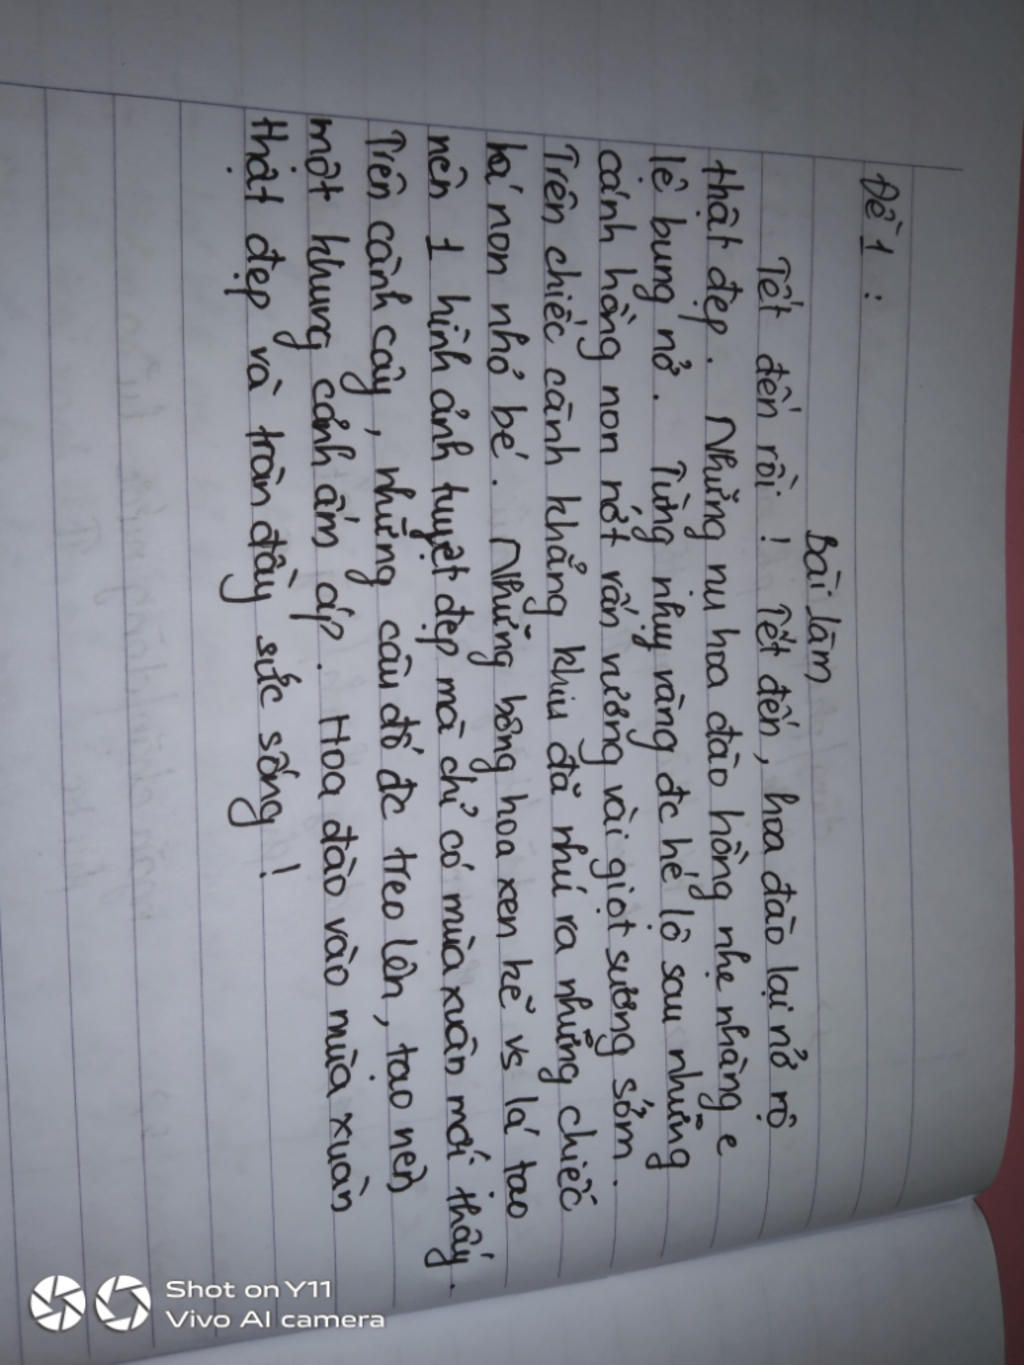 Đề 1 :
Bài làm
Tết đến rồi ! Tết đến, hoa đào lại nở rộ
thật đẹp. Những nụ hoa đào hồng nhẹ nhàng e
lệ bung nở. Từng nhụy vàng đc hé lộ sau những
cánh hồng non nớt vấn vương vài giọt sương sớm.
Trên chiếc cành khẳng khiu đã nhú ra những chiếc
lá non nhỏ bé. Những bông hoa xen kẽ vs lá tạo
nên 1 hình ảnh tuyệt đẹp mà chỉ có mùa xuân mới thấy.
Trên cành cây, những câu đố đc treo lên, tạo nên
một khung cảnh ấm áp. Hoa đào vào mùa xuân
thật đẹp và tràn đầy sức sống !
Shot on Y11
Vivo AI camera